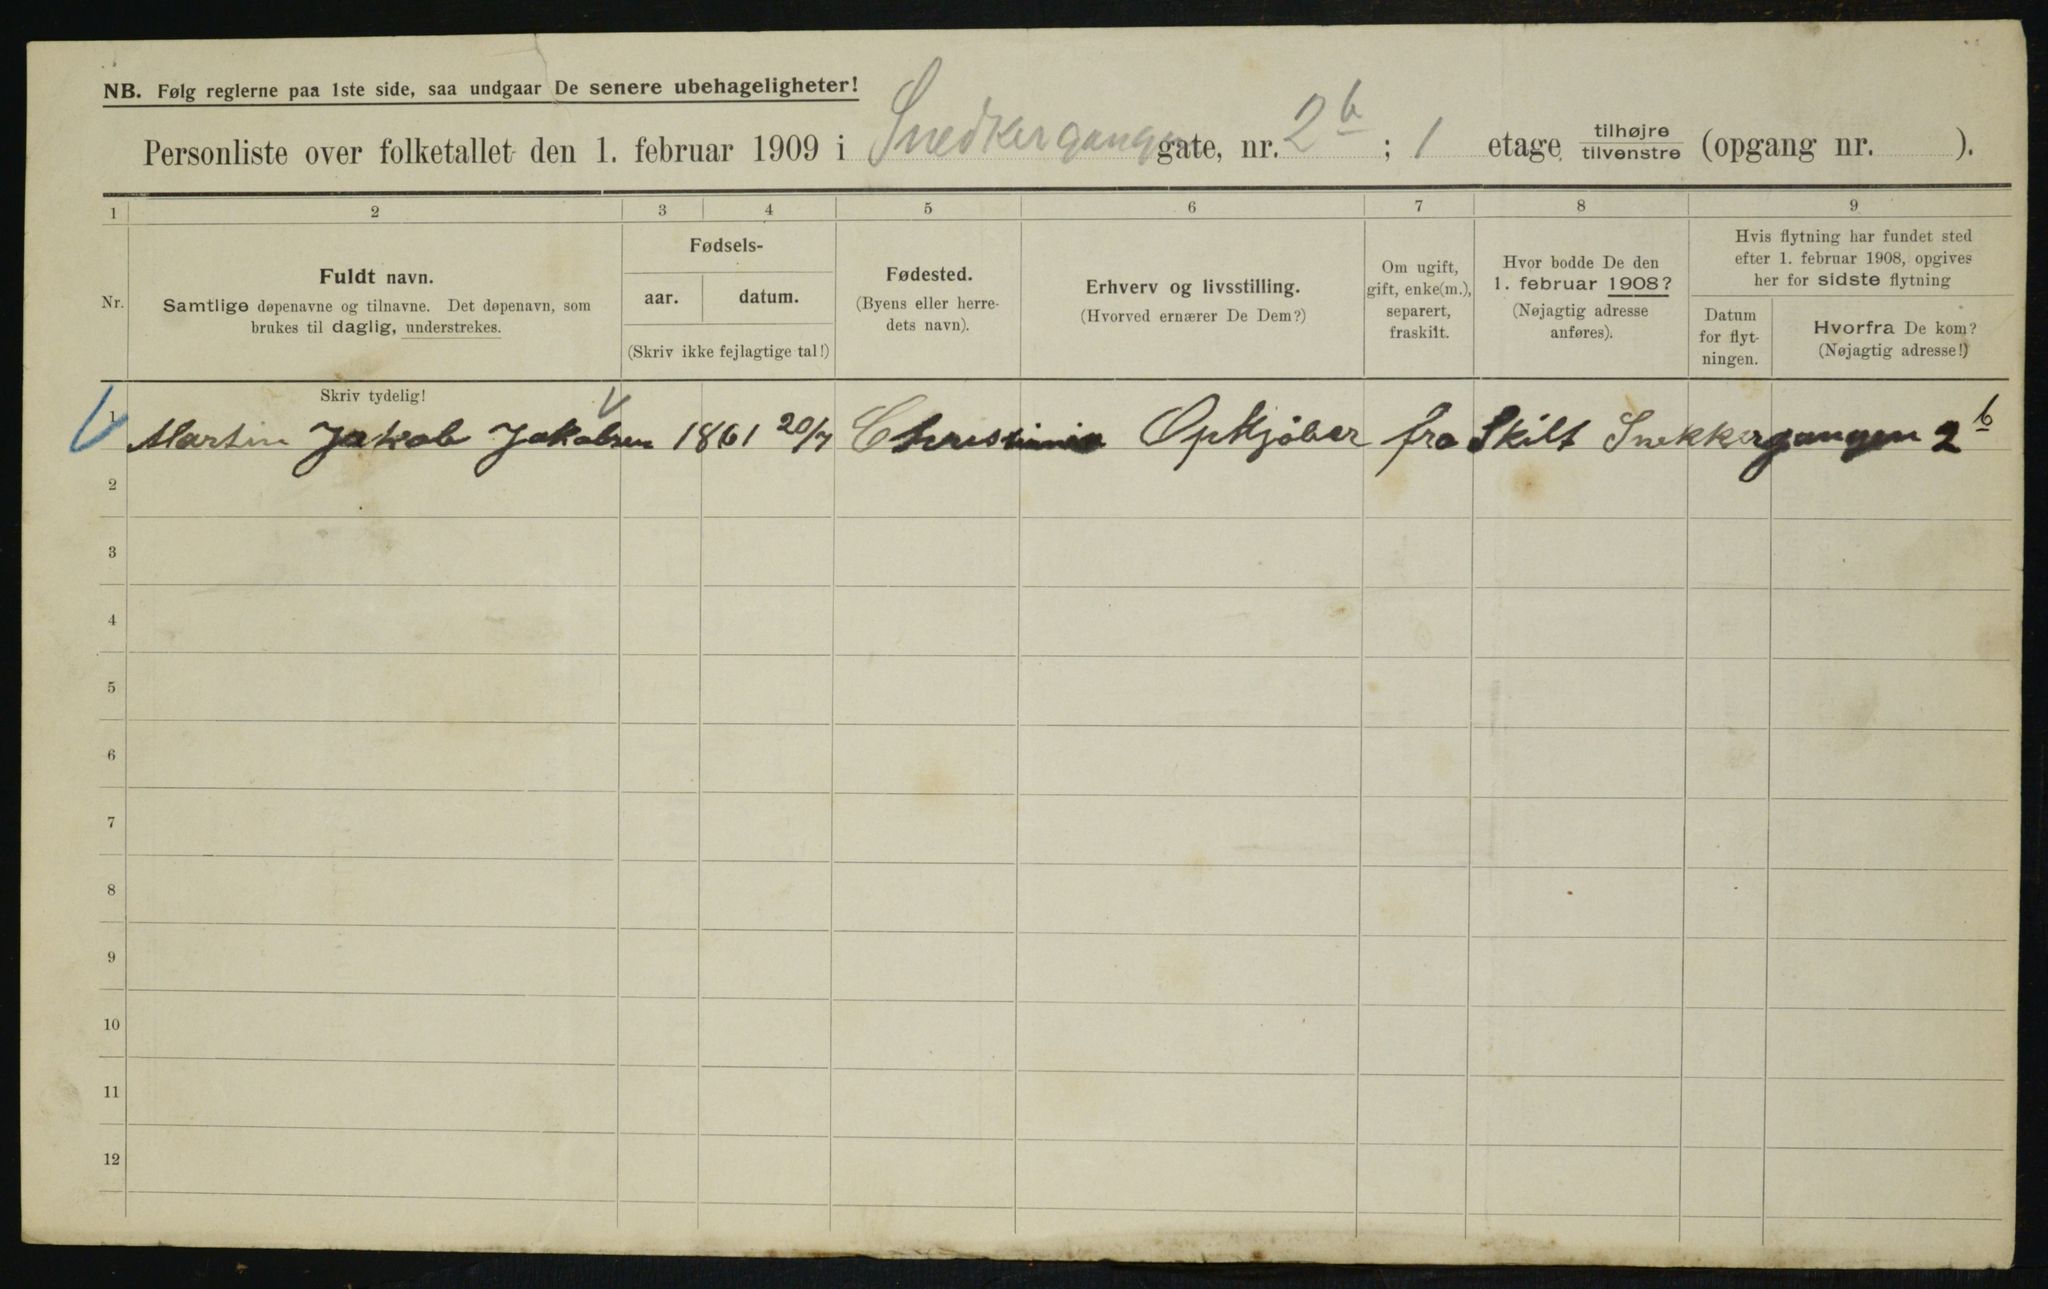 NB. Følg reglerne paa 1ste side, saa undgaar De senere ubehageligheter!
Personliste over folketallet den 1. februar 1909 i Snedkergangen gate, nr. 2b ; 1 etage tilhøjre tilvenstre (opgang nr. ).
1 2 3 4 5 6 7 8 9
Nr.
Fuldt navn.
Samtlige døpenavne og tilnavne. Det døpenavn, som
brukes til daglig, understrekes.
Fødsels-
aar. datum.
(Skriv ikke fejlagtige tal!)
Fødested.
(Byens eller herre-
dets navn).
Erhverv og livsstilling.
(Hvorved ernærer De Dem?)
Om ugift,
gift, enke(m.),
separert,
fraskilt.
Hvor bodde De den
1. februar 1908?
(Nøjagtig adresse
anføres).
Hvis flytning har fundet sted
efter 1. februar 1908, opgives
her for sidste flytning
Datum
for flyt-
ningen.
Hvorfra De kom?
(Nøjagtig adresse!)
Skriv tydelig!
1 Martin Jakob Jakobsen 1861 20/7 Christiania Opkjøber fraskilt Snekkergangen 2b
2
3
4
5
6
7
8
9
10
11
12